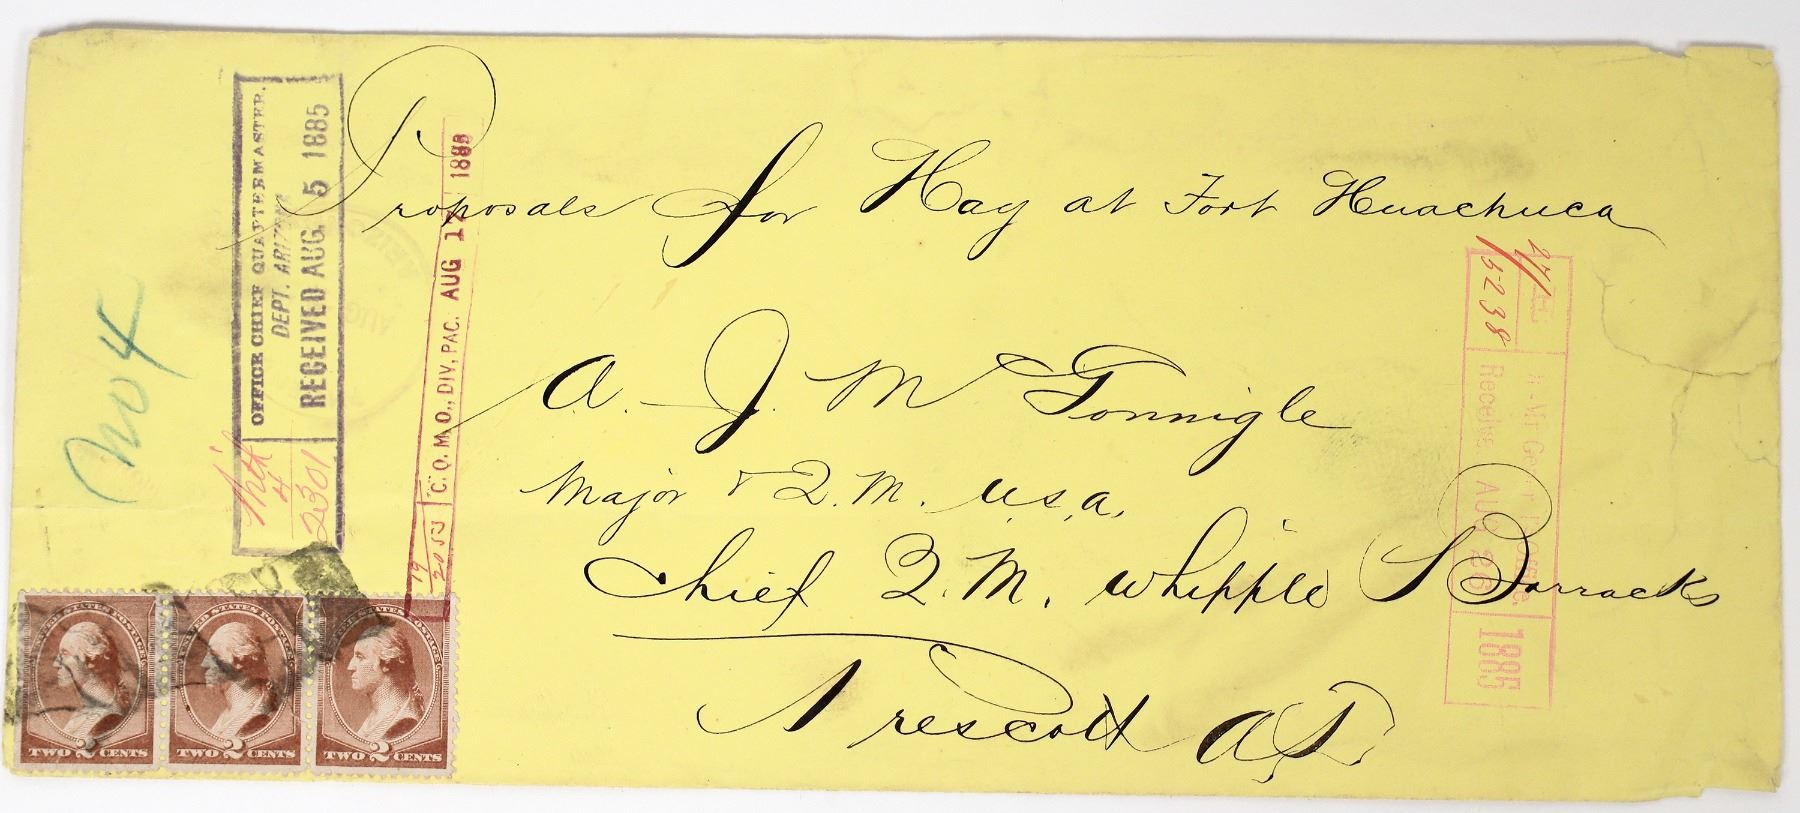 Proposals for Hay at Fort Huachuca
A. J. McGonnigle
Major & Q.M. U.S.A.
Chief Q.M. Whipple Barracks
Prescott A.T.
No 4
OFFICE CHIEF QUARTERMASTER.
DEPT. ARIZONA
RECEIVED AUG. 5 1885
4
2301
C. Q. M. O., DIV. PAC. AUG 17 1885
19
2053
5238
Received AUG 26 1885
UNITED STATES POSTAGE
TWO 2 CENTS
UNITED STATES POSTAGE
TWO 2 CENTS
UNITED STATES POSTAGE
TWO 2 CENTS